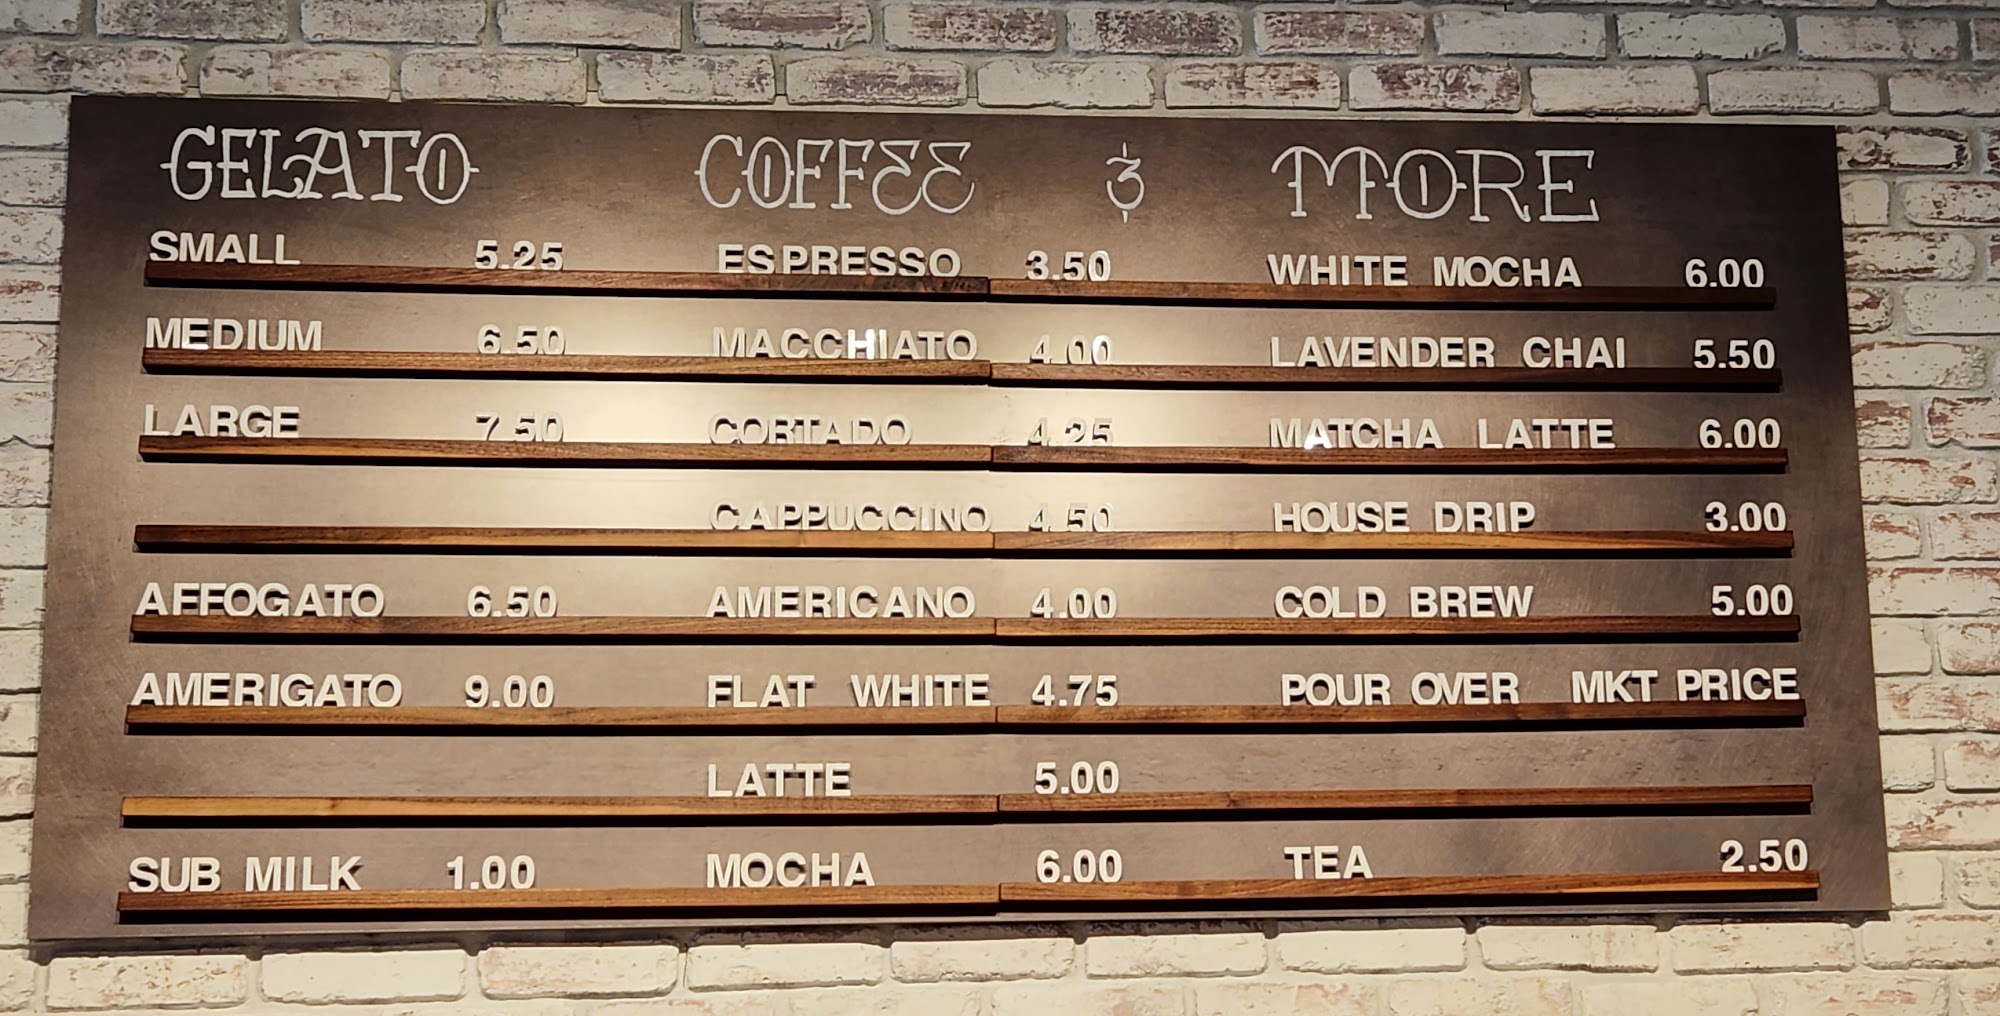 GELATO COFFEE & MORE
SMALL 5.25 ESPRESSO 3.50 WHITE MOCHA 6.00
MEDIUM 6.50 MACCHIATO 4.00 LAVENDER CHAI 5.50
LARGE 7.50 CORTADO 4.25 MATCHA LATTE 6.00
CAPPUCCINO 4.50 HOUSE DRIP 3.00
AFFOGATO 6.50 AMERICANO 4.00 COLD BREW 5.00
AMERIGATO 9.00 FLAT WHITE 4.75 POUR OVER MKT PRICE
LATTE 5.00
SUB MILK 1.00 MOCHA 6.00 TEA 2.50